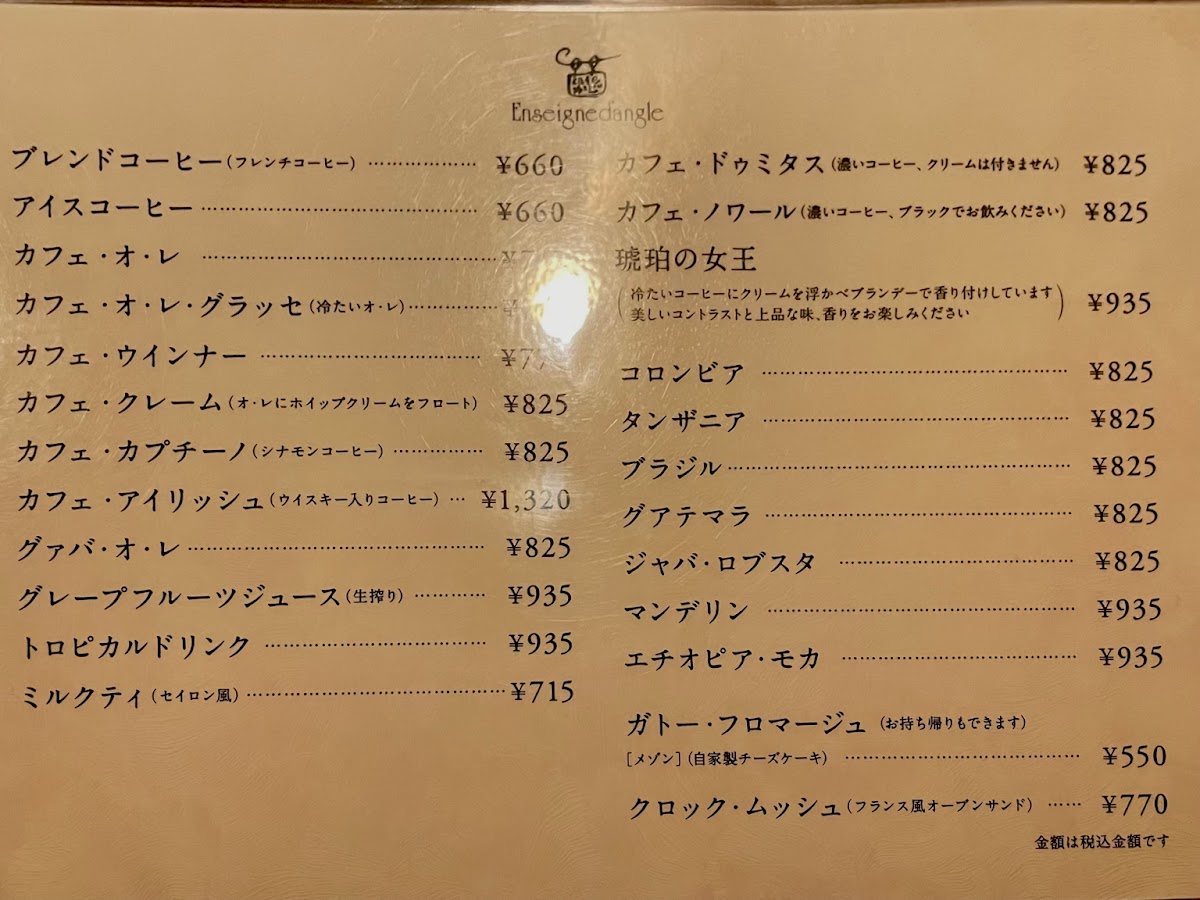 Enseigned'angle
ブレンドコーヒー(フレンチコーヒー) ………………… ¥660
アイスコーヒー ………………………………… ¥660
カフェ・オ・レ …………………………………
カフェ・オ・レ・グラッセ(冷たいオ・レ)…………
カフェ・ウインナー ……………………………
カフェ・クレーム(オ・レにホイップクリームをフロート) ¥825
カフェ・カプチーノ(シナモンコーヒー) ………… ¥825
カフェ・アイリッシュ(ウイスキー入りコーヒー) … ¥1,320
グァバ・オ・レ ………………………………… ¥825
グレープフルーツジュース(生搾り) ………… ¥935
トロピカルドリンク …………………………… ¥935
ミルクティ(セイロン風) ………………………………… ¥715
カフェ・ドゥミタス(濃いコーヒー、クリームは付きません) ¥825
カフェ・ノワール(濃いコーヒー、ブラックでお飲みください) ¥825
琥珀の女王
(冷たいコーヒーにクリームを浮かべブランデーで香り付けしています
美しいコントラストと上品な味、香りをお楽しみください) ¥935
コロンビア ……………………………………… ¥825
タンザニア ……………………………………… ¥825
ブラジル ………………………………………… ¥825
グアテマラ ……………………………………… ¥825
ジャバ・ロブスタ ……………………………… ¥825
マンデリン ……………………………………… ¥935
エチオピア・モカ ……………………………… ¥935
ガトー・フロマージュ (お持ち帰りもできます)
[メゾン](自家製チーズケーキ) ……………………………… ¥550
クロック・ムッシュ(フランス風オーブンサンド) …… ¥770
金額は税込金額です